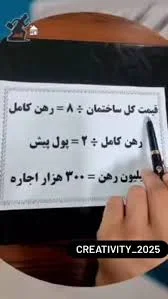 قیمت کل ساختمان ÷ ۸ = رهن کامل
رهن کامل ÷ ۲ = پول پیش
میلیون رهن = ۳۰۰ هزار اجاره
CREATIVITY_2025